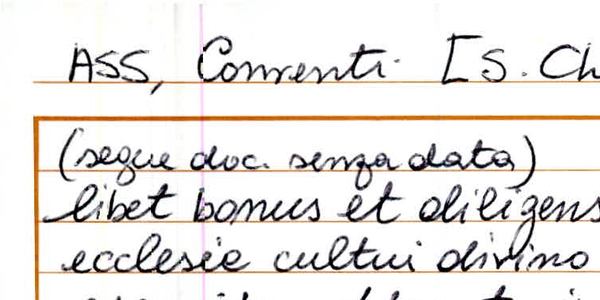 ASS, Conventi [S. Ch
(segue doc. senza data)
libet bonus et diligens
ecclesie cultui divino